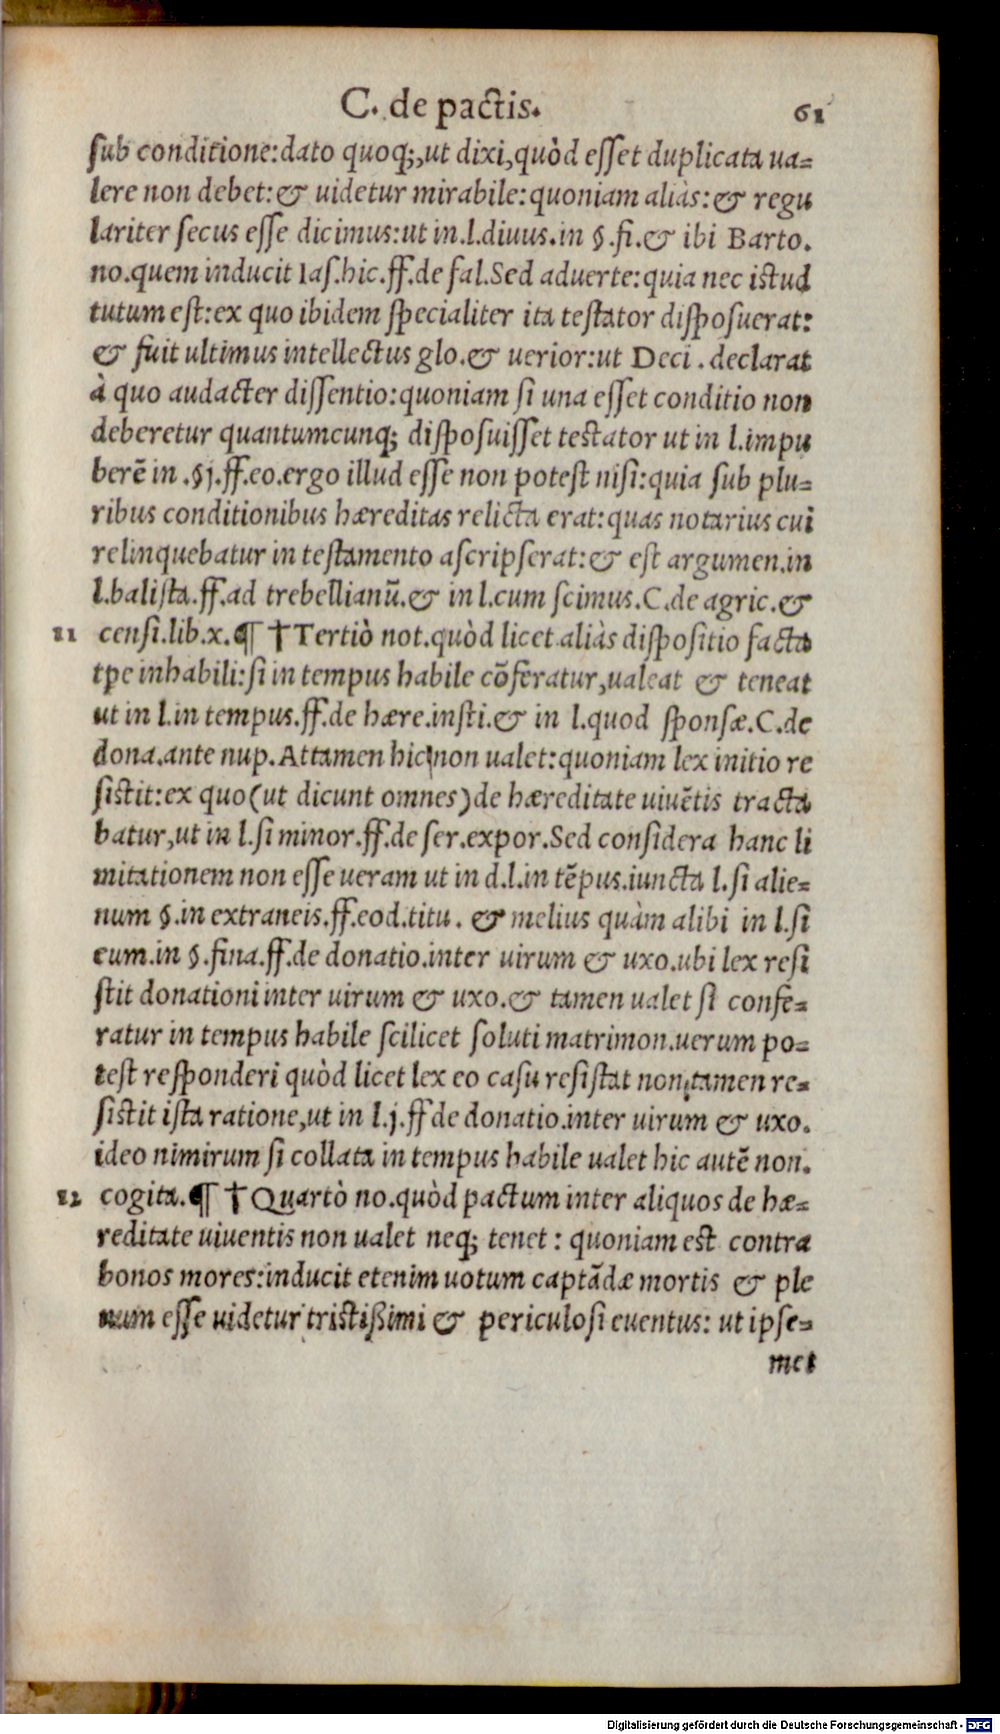 C. de pactis. 61
sub conditione: dato quoq;, ut dixi, quòd esset duplicata ua-
lere non debet: & uidetur mirabile: quoniam aliàs: & regu
lariter secus esse dicimus: ut in.l.diuus.in §.fi.& ibi Barto.
no.quem inducit Ias.hic.ff.de fal.Sed aduerte: quia nec istud
tutum est: ex quo ibidem specialiter ita testator disposuerat:
& fuit ultimus intellectus glo.& uerior: ut Deci. declarat
à quo audacter dissentio: quoniam si una esset conditio non
deberetur quantumcunq; disposuisset testator ut in l.impu
berẽ in .§j.ff.eo.ergo illud esse non potest nisi: quia sub plu-
ribus conditionibus hæreditas relicta erat: quas notarius cui
relinquebatur in testamento ascripserat: & est argumen.in
l.balista.ff.ad trebellianũ.& in l.cum scimus.C.de agric.&
11 censi.lib.x.¶ †Tertiò not.quòd licet aliàs dispositio facta
tpe inhabili: si in tempus habile cõferatur, ualeat & teneat
ut in l.in tempus.ff.de hære.insti.& in l.quod sponsæ.C.de
dona.ante nup.Attamen hic non ualet: quoniam lex initio re
sistit: ex quo (ut dicunt omnes) de hæreditate uiuẽtis tracta
batur, ut in l.si minor.ff.de ser.expor.Sed considera hanc li
mitationem non esse ueram ut in d.l.in tẽpus.iuncta l.si alie-
num §.in extraneis.ff.eod.titu. & melius quàm alibi in l.si
eum.in §.fina.ff.de donatio.inter uirum & uxo.ubi lex resi
stit donationi inter uirum & uxo.& tamen ualet si confe-
ratur in tempus habile scilicet soluti matrimon.uerum po-
test responderi quòd licet lex eo casu resistat non tamen re-
sistit ista ratione, ut in l.j.ff de donatio.inter uirum & uxo.
ideo nimirum si collata in tempus habile ualet hic autẽ non.
12 cogita.¶ †Quartò no.quòd pactum inter aliquos de hæ-
reditate uiuentis non ualet neq; tenet: quoniam est contra
bonos mores: inducit etenim uotum captãdæ mortis & ple
num esse uidetur tristißimi & periculosi euentus: ut ipse-
met
Digitalisierung gefördert durch die Deutsche Forschungsgemeinschaft - DFG